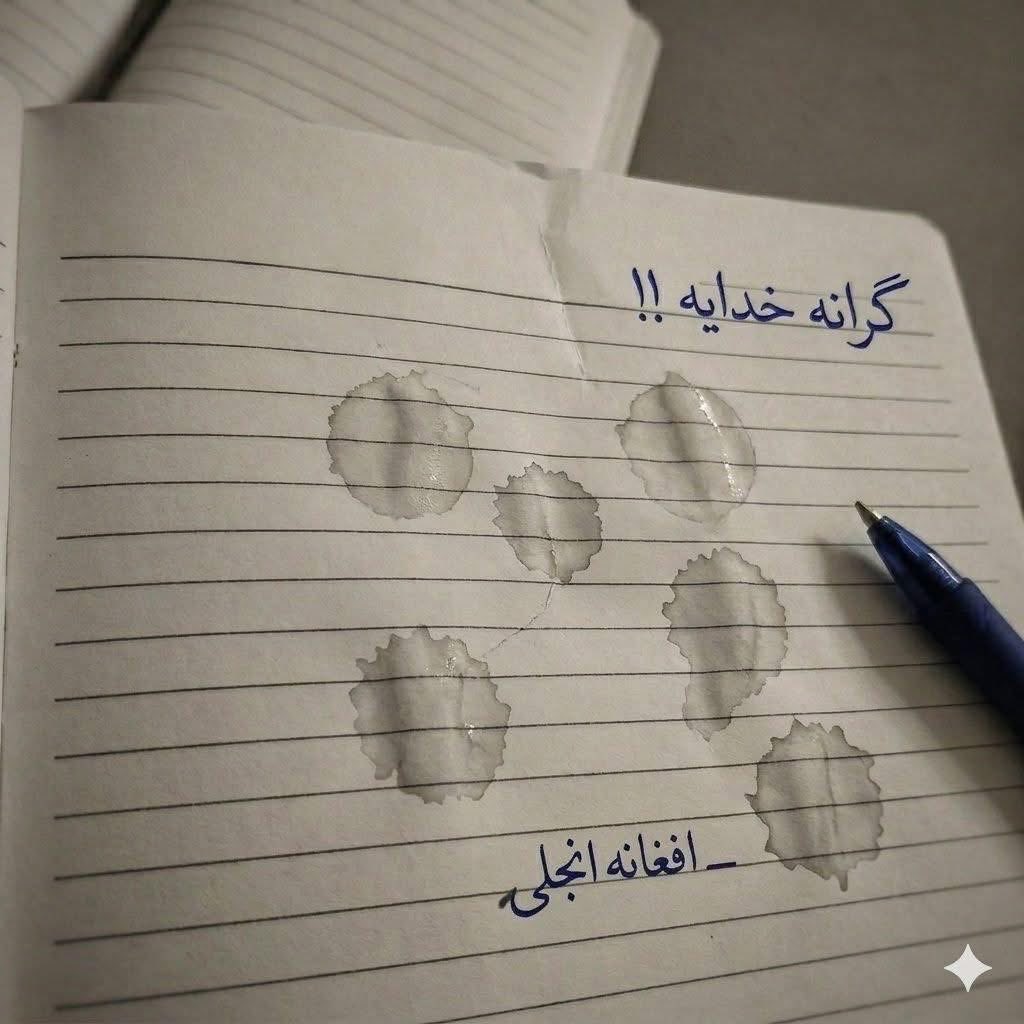 گرانه خدايه !!
– افغانه انجلی